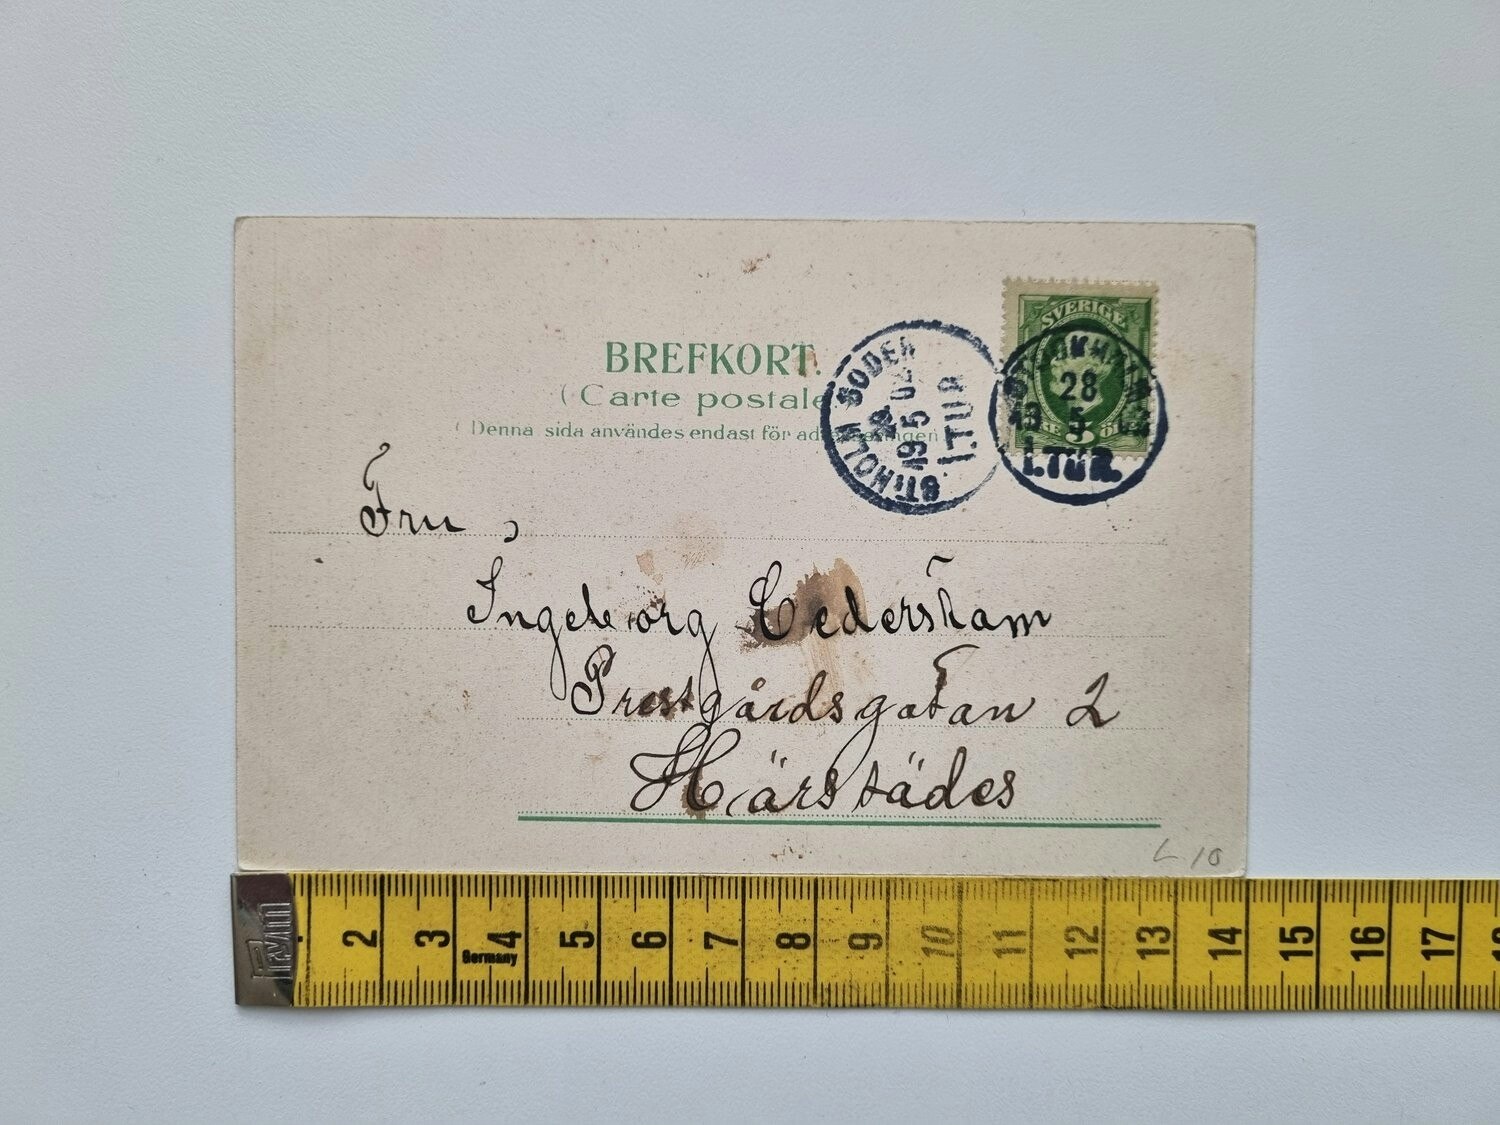 BREFKORT.
(Carte postale
(Denna sida användes endast för
SVERIGE
STOCKHOLM
28
5
1.TUR.
STHOLM SÖDER
19 5 02
1.TUR
Fru,
Ingeborg Cederstam
Prestgårdsgatan 2
Härstädes
L 10
2 3 4 5 6 7 8 9 10 11 12 13 14 15 16 17
Germany